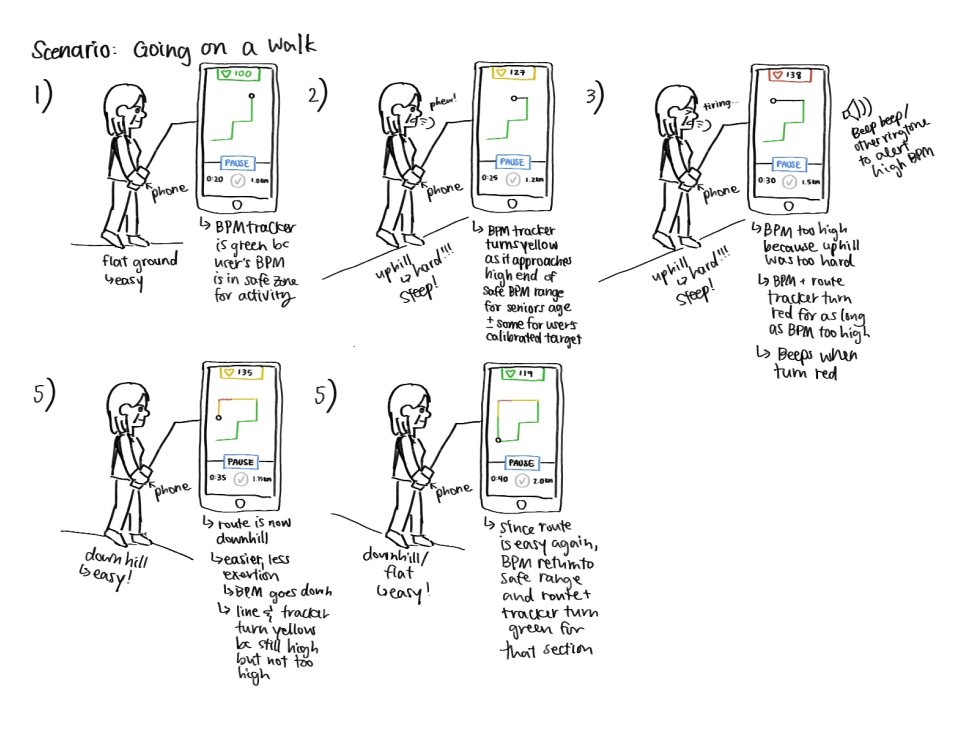 Scenario: Going on a walk
1)
♡ 100
PAUSE
0:20 1.0km
phone
flat ground
↳ easy
↳ BPM tracker
is green bc
user's BPM
is in safe zone
for activity
2)
phew!
♡ 127
PAUSE
0:25 1.2km
phone
uphill
↳ hard!!!
steep!
↳ BPM tracker
turns yellow
as it approaches
high end of
safe BPM range
for seniors age
± some for users
calibrated target
3)
tiring...
♡ 138
PAUSE
0:30 1.5km
phone
Beep beep/
other ringtone
to alert
high BPM
uphill
↳ hard!!!
steep!
↳ BPM too high
because uphill
was too hard
↳ BPM + route
tracker turn
red for as long
as BPM too high
↳ Beeps when
turn red
5)
♡ 135
PAUSE
0:35 1.75km
phone
downhill
↳ easy!
↳ route is now
downhill
↳ easier, less
exertion
↳ BPM goes down
↳ line & tracker
turn yellow
bc still high
but not too
high
5)
♡ 119
PAUSE
0:40 2.0km
phone
downhill/
flat
↳ easy!
↳ since route
is easy again,
BPM return to
safe range
and route +
tracker turn
green for
that section